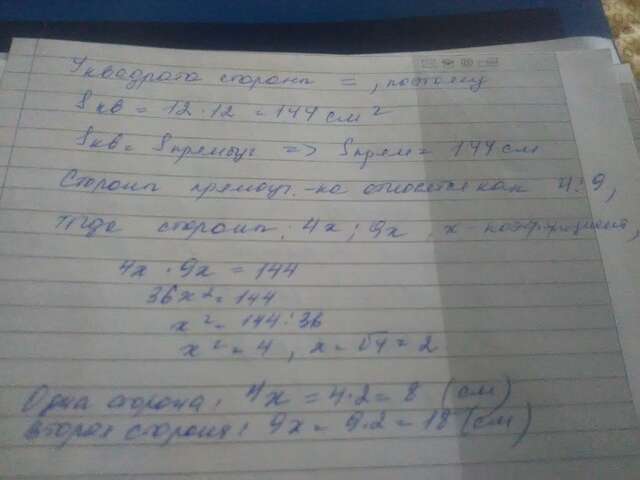 У квадрата стороны =, поэтому
Sкв = 12·12 = 144 см²
Sкв = Sпрямоуг => Sпрям = 144 см
Стороны прямоуг.-ка относятся как 4:9,
тогда стороны: 4x; 9x, x - коэффициент,
4x · 9x = 144
36x² = 144
x² = 144:36
x² = 4, x = √4 = 2
Одна сторона: 4x = 4·2 = 8 (см)
Вторая сторона: 9x = 9·2 = 18 (см)